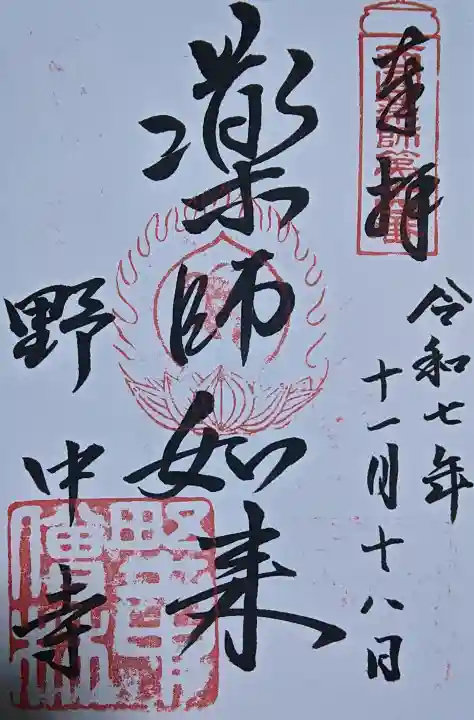 奉拝
令和七年
十一月十八日
薬師如来
野中寺
野中僧林